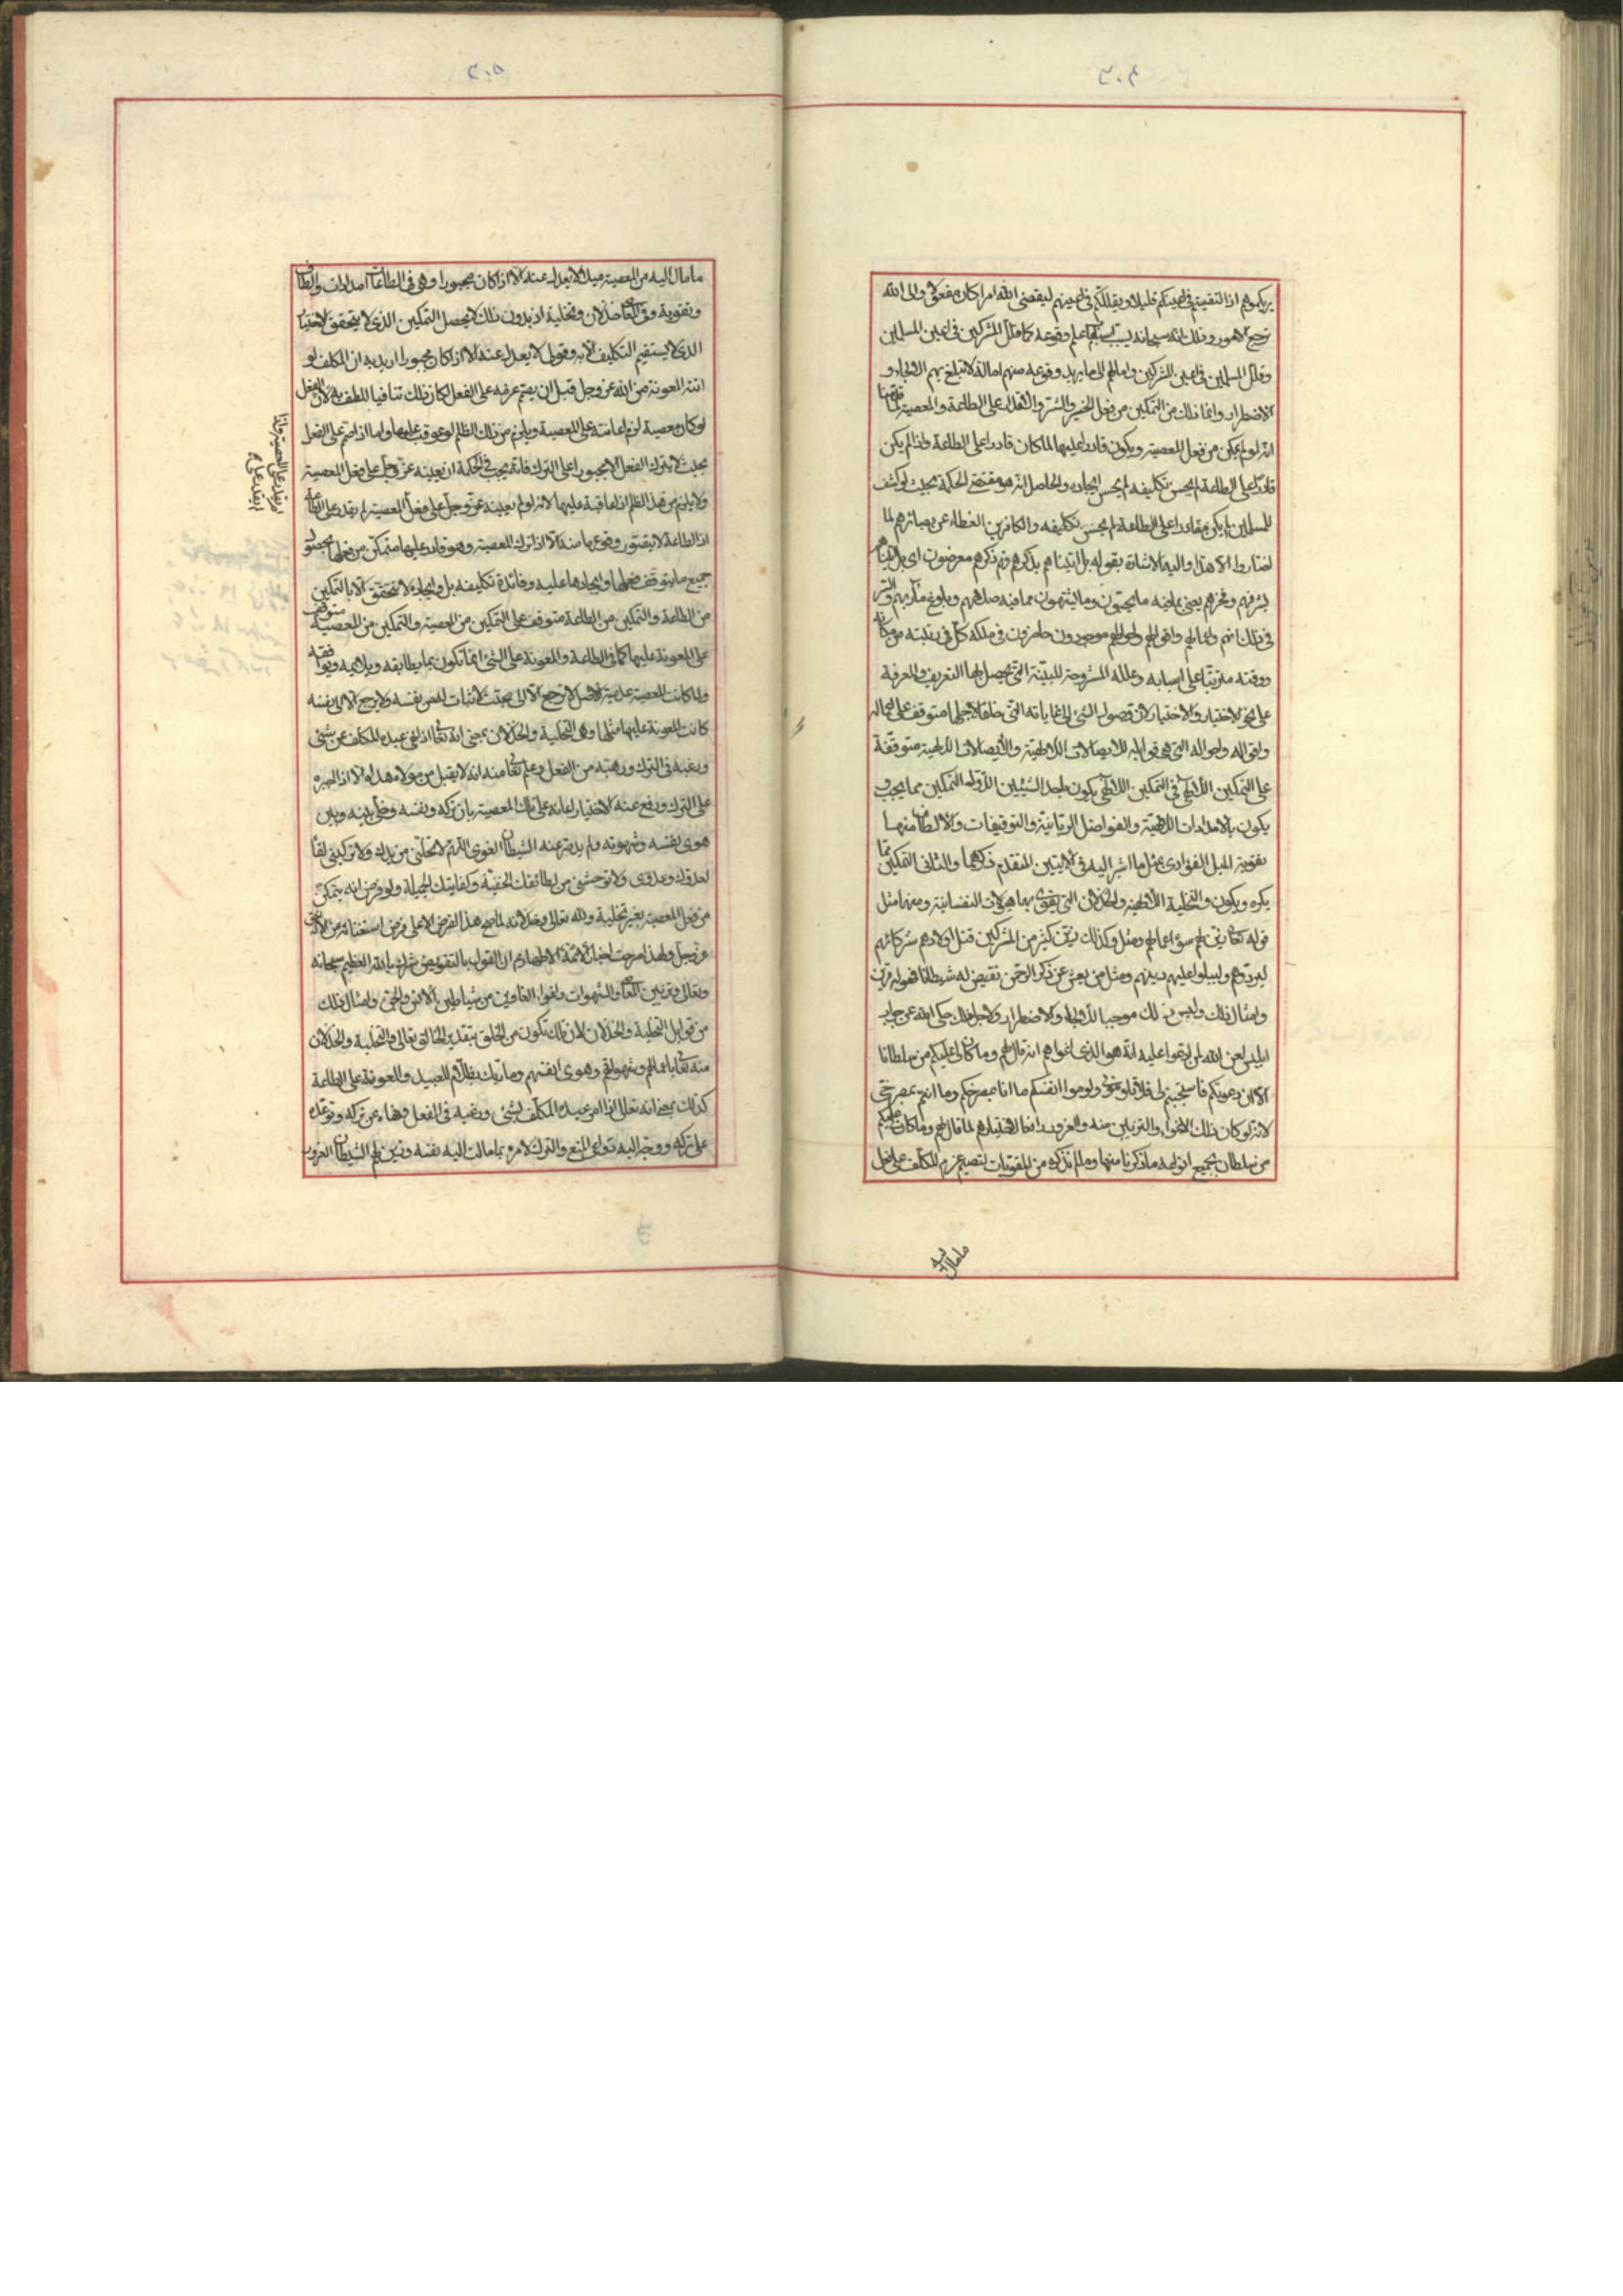 ٢٠٤
يريكموهم اذا التقيتم في اعينكم قليلا ويقللكم في اعينهم ليقضي الله امرا كان مفعولا والى الله
ترجع الامور وذلك انه سبحانه يسبب اسبابه ما علم وقوعه كما قلل المشركين في اعين المسلمين
وقلل المسلمين في اعين المشركين وامالهم الى ما يريد وقوعه منهم امالة لا تبلغ بهم الالجاء و
الاضطرار وانما ذلك من التمكين من فعل الخير والشر والاقدار على الطاعة والمعصية
انه لو لم يمكن من فعل المعصية ويكون قادرا عليها لما كان قادرا على الطاعة واذا لم يكن
قادرا على الطاعة لم يحسن تكليفه لم يحسن ايجاده والحاصل انه هو مقتضى الحكمة بحيث لو كشف
للمسلمين لم يكن مقادرا على الطاعة لم يحسن تكليفه والكافرين الغطاء عن بصائرهم لما
اختاروا الا هذا واليه الاشارة بقوله بل اتيناهم بذكرهم فهم عن ذكرهم معرضون اي بل اتيناهم
بشرفهم وفخرهم يعني بما فيه ما يحبون وما يشتهون مما فيه صلاحهم وبلوغ مآربهم والسر
في ذلك انهم واعمالهم واقوالهم واحوالهم موجودون حاضرون في ملكه كل في رتبته من مكانه
ووقته مترتبا على اسبابه وعلله المشروحة المبينة التي يحصل بها التعريف والمعرفة
على نحو الاختيار والاختيار لان وصول الشئ الى غاياته التي خلق لاجلها متوقف على اعماله
واقواله واحواله التي هي قوابله للايصالات الالهية والايصالات الالهية متوقفة
على التمكين الالهي في التمكين الالهي يكون باحد الشيئين الاول التمكين مما يحب و
يكون بالامدادات الالهية والفواضل الربانية والتوفيقات والالطاف منها
تقوية الميل الفؤادي بمثل ما اشير اليه في الايتين المتقدم ذكرهما والثاني التمكين مما
يكره ويكون بالتخلية الالهية والخذلان التي يقوى بها هيولات النفسانية ومنها مثل
قوله تعالى زين لهم سوء اعمالهم ومثل وكذلك زين لكثير من المشركين قتل اولادهم شركائهم
ليردوهم وليلبسوا عليهم دينهم ومثل من يعش عن ذكر الرحمن نقيض له شيطانا فهو له قرين
وامثال ذلك وليس ذلك موجبا للالجاء والاضطرار ولاجل ذلك حكى الله عن جواب
ابليس لعن الله لمن ادعوا عليه انه هو الذي اغواهم انه قال لهم وما كان لي عليكم من سلطانا
الا ان دعوتكم فاستجبتم لي فلا تلوموني ولوموا انفسكم ما انا بمصرخكم وما انتم بمصرخي
لانه لو كان ذلك الاغواء والتزيين منه والغرور رافعا لاختيارهم لما قال لهم وما كان لي عليكم
من سلطان بجميع انواعه ما ذكرنا منها وما لم نذكره من المقويات لتصميم عزم المكلف على فعل
ما مال اليه
٢٠٥
ما مال اليه من المعصية ميلا لا يعدل عنه الا اذا كان مجبورا وهي في الطاعات امدادات والطاف
وتقوية وفي المعاصي خذلان وتخلية اذ بدون ذلك لا يحصل التمكين الذي لا يتحقق الاختيار
الذي لا يستقيم التكليف الا به وقولي لا يعدل عنه الا اذا كان مجبورا اريد به ان المكلف لو
اتته المعونة من الله عز وجل قبل ان يصمم عزمه على الفعل لكان ذلك تنافيا للطف به لان الفعل
لو كان معصية لزم اعانته على المعصية ويلزم من ذلك الظلم لو عوقب عليها واما اذا صمم على الفعل
بحيث لا يترك الفعل الا مجبورا على الترك فانه يجب في الحكمة ان يعينه عز وجل على فعل المعصية
ولا يلزم من هذا الظلم اذا عاقبه عليها لانه لو لم يعينه عز وجل على فعل المعصية لم يقدر على الطاعة
اذ الطاعة لا يتصور وقوعها منه الا اذا ترك المعصية وهو قادر عليها متمكن من فعلها بحصول
جميع ما يتوقف فعلها وايجادها عليه وفائدة تكليفه بل وايجاده لا تتحقق الا بالتمكين
من الطاعة والتمكين من الطاعة متوقف على التمكين من المعصية والتمكين من المعصية متوقف
على المعونة عليها كما في الطاعة والمعونة على الشئ انما تكون بما يطابقه ويلائمه ويوافقه
ولما كانت المعصية عدمية الاصل لا ترجع الا الى مجتث لا ثبات له من نفسه ولا يرجع الا الى نفسه
كانت المعونة عليها مثلها وهي التخلية والخذلان بمعنى انه تعالى اذا نهى عبده المكلف عن شئ
ورغبه في الترك ورهبه من الفعل وعلم تعالى منه انه لا يقبل من مولاه هداه الا اذا اجبره
على الترك ورفع عنه الاختيار اعانه على تلك المعصية بان تركه ونفسه وخلى بينه وبين
هوى نفسه وشهوته ولم يدفع عنه الشيطان المغوي اللهم لا تخلني من يدك ولا تركبني لقا
لعدوك وعدوي ولا توحشني من لطائفك الخفية وكفايتك الجميلة ولو فرض انه يتمكن
من فعل المعصية بغير تخلية الله تعالى وخذلانه لما صح هذا الفرض الا على فرض استغنائه عن الله
عز وجل ولهذا صرحت اخبار الائمة الاطهار ان القول بالتفويض شرك بالله العظيم سبحانه
وتعالى وتزيين المعاصي والشهوات واغواء الغاوين من شياطين الانس والجن وامثال ذلك
من قوابل التخلية والخذلان لان ذلك تكون من الخلق بتقدير الخالق تعالى والتخلية والخذلان
منه تعالى باعمالهم وشهواتهم وهوى انفسهم وما ربك بظلام للعبيد والمعونة على الطاعة
كذلك بمعنى انه تعالى اذا امر عبده المكلف بشئ ورغبه في الفعل ونهاه عن تركه وتوعده
على تركه ووجه اليه دواعي المنع والترك لامره بما مالت اليه نفسه وزين لهم الشيطان الغرور